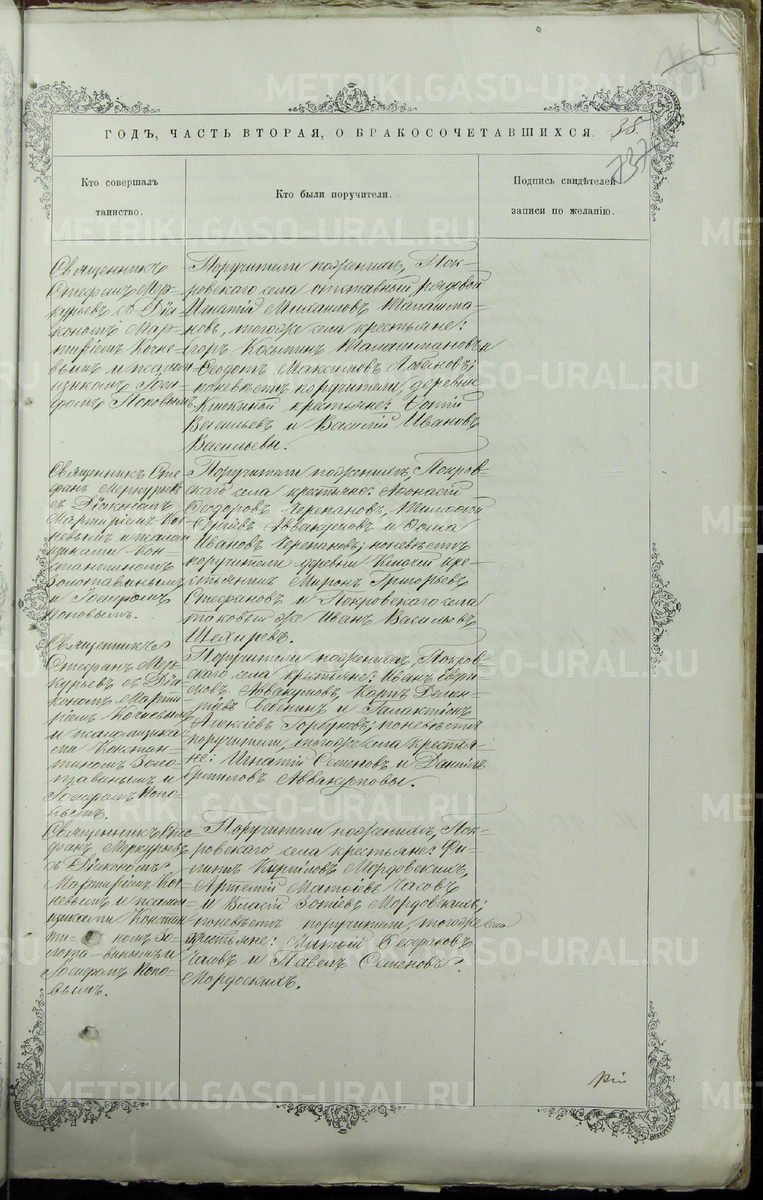 ГОДЪ, ЧАСТЬ ВТОРАЯ, О БРАКОСОЧЕТАВШИХСЯ.
38.
737
Кто совершалъ
таинство.
Кто были поручители.
Подпись свидѣтелей
записи по желанію.
Священникъ
Стефанъ Мер-
курьевъ съ Діа-
кономъ Мар-
тиріемъ Кочне-
вымъ и псалом-
щикомъ
Поповымъ.
Поручители по женихѣ, Пок-
ровскаго села отставный рядовой
Игнатій Михаиловъ
тогоже села крестьяне:
Егоръ Косьминъ
Ѳеодотъ Максимовъ
по невѣстѣ поручители деревни
крестьяне:
Васильевъ и Василій Ивановъ
Васильевы.
Священникъ Сте-
фанъ Меркурьевъ
съ Діакономъ
Мартиріемъ Коч-
невымъ и псалом-
щиками Кон-
стантиномъ
Золотавинымъ
и Іосифомъ
Поповымъ.
Поручители по женихѣ, Покров-
скаго села крестьяне: Аѳонасій
Ѳеодоровъ Черепановъ, Тимоѳей
Аввакумовъ и Ѳома
Ивановъ Черепановъ; по невѣстѣ
поручители деревни Ключей кре-
стьянинъ Миронъ Григорьевъ
Стефановъ и Покровскаго села
таковый же Иванъ Васильевъ
Шахиревъ.
Священникъ
Стефанъ Мер-
курьевъ съ Діа-
кономъ Марти-
ріемъ Кочневымъ
и псаломщика-
ми Констан-
тиномъ Золо-
тавинымъ и
Іосифомъ Попо-
вымъ.
Поручители по женихѣ, Покров-
скаго села крестьяне: Иванъ
Аввакумовъ, Карпъ Демен-
тіевъ и Галактіонъ
Алексіевъ Горбуновъ; по невѣстѣ
поручители, тогоже села крестья-
не: Игнатій Семеновъ и Даніилъ
Филиповъ Аввакумовы.
Священникъ Сте-
фанъ Меркурьевъ
съ Діакономъ
Мартиріемъ Коч-
невымъ и псалом-
щиками Констан-
тиномъ Зо-
лотавинымъ и
Іосифомъ Попо-
вымъ.
Поручители по женихѣ, Пок-
ровскаго села крестьяне: Фи-
липъ Кириловъ Мордовскихъ,
Артемій Матѳіевъ Часовъ
и Власій Зотіевъ Мордовскихъ;
по невѣстѣ поручители, тогоже села
крестьяне: Ѳеофановъ
Часовъ и Павелъ Семеновъ
Мордовскихъ.
METRIKI.GASO-URAL.RU
METRIKI.GASO-URAL.RU
METRIKI.GASO-URAL.RU
METRIKI.GASO-URAL.RU
METRIKI.GASO-URAL.RU
METRIKI.GASO-URAL.RU
METRIKI.GASO-URAL.RU
METRIKI.GASO-URAL.RU